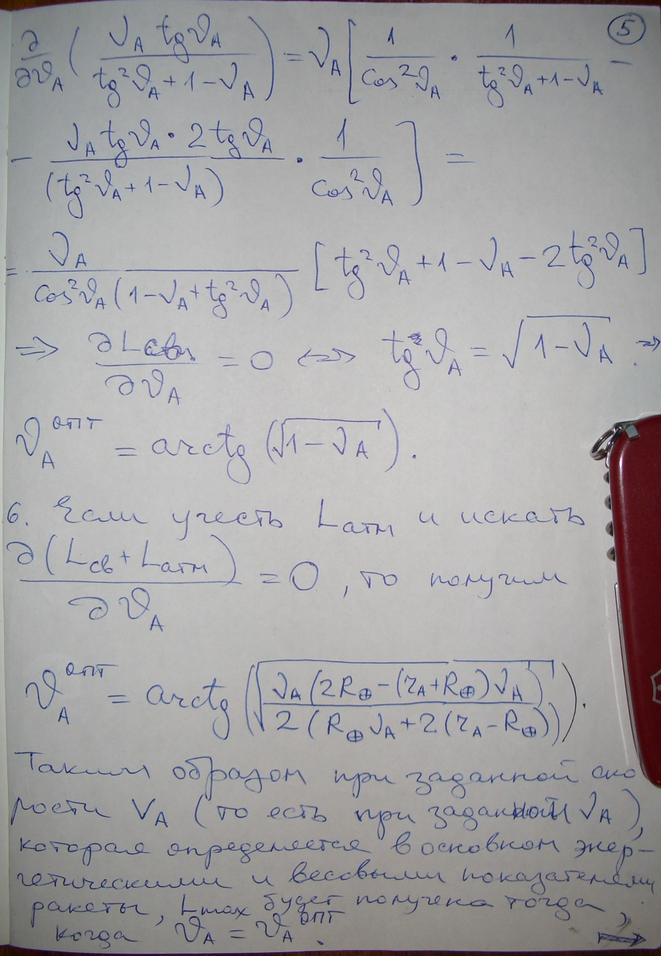 5
∂/∂ϑ_A ( ν_A tgϑ_A / (tg²ϑ_A + 1 - ν_A) ) = ν_A [ 1/cos²ϑ_A · 1/(tg²ϑ_A + 1 - ν_A) -
- ν_A tgϑ_A · 2 tgϑ_A / (tg²ϑ_A + 1 - ν_A) · 1/cos²ϑ_A ] =
= ν_A / (cos²ϑ_A (1 - ν_A + tg²ϑ_A)) [ tg²ϑ_A + 1 - ν_A - 2tg²ϑ_A ]
=> ∂L_св/∂ϑ_A = 0 <=> tgϑ_A = √(1 - ν_A) =>
ϑ_A^опт = arctg (√(1 - ν_A)).
6. Если учесть L_атм и искать
∂(L_св + L_атм)/∂ϑ_A = 0, то получим
ϑ_A^опт = arctg ( √( ν_A (2R⊕ - (r_A + R⊕) ν_A) / 2 (R⊕ ν_A + 2 (r_A - R⊕)) ) ).
Таким образом при заданной ско
рости V_A (то есть при заданной ν_A),
которая определяется в основном энер-
гетическими и весовыми показателями
ракеты, L_max будет получена тогда,
когда ϑ_A = ϑ_A^опт. =>